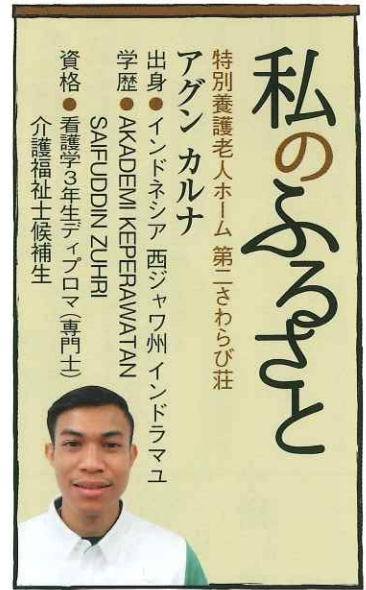 私のふるさと
特別養護老人ホーム 第二さわらび荘
アグン カルナ
出身●インドネシア 西ジャワ州 インドラマユ
学歴●AKADEMI KEPERAWATAN
SAIFUDDIN ZUHRI
資格●看護学3年生ディプロマ(専門士)
介護福祉士候補生